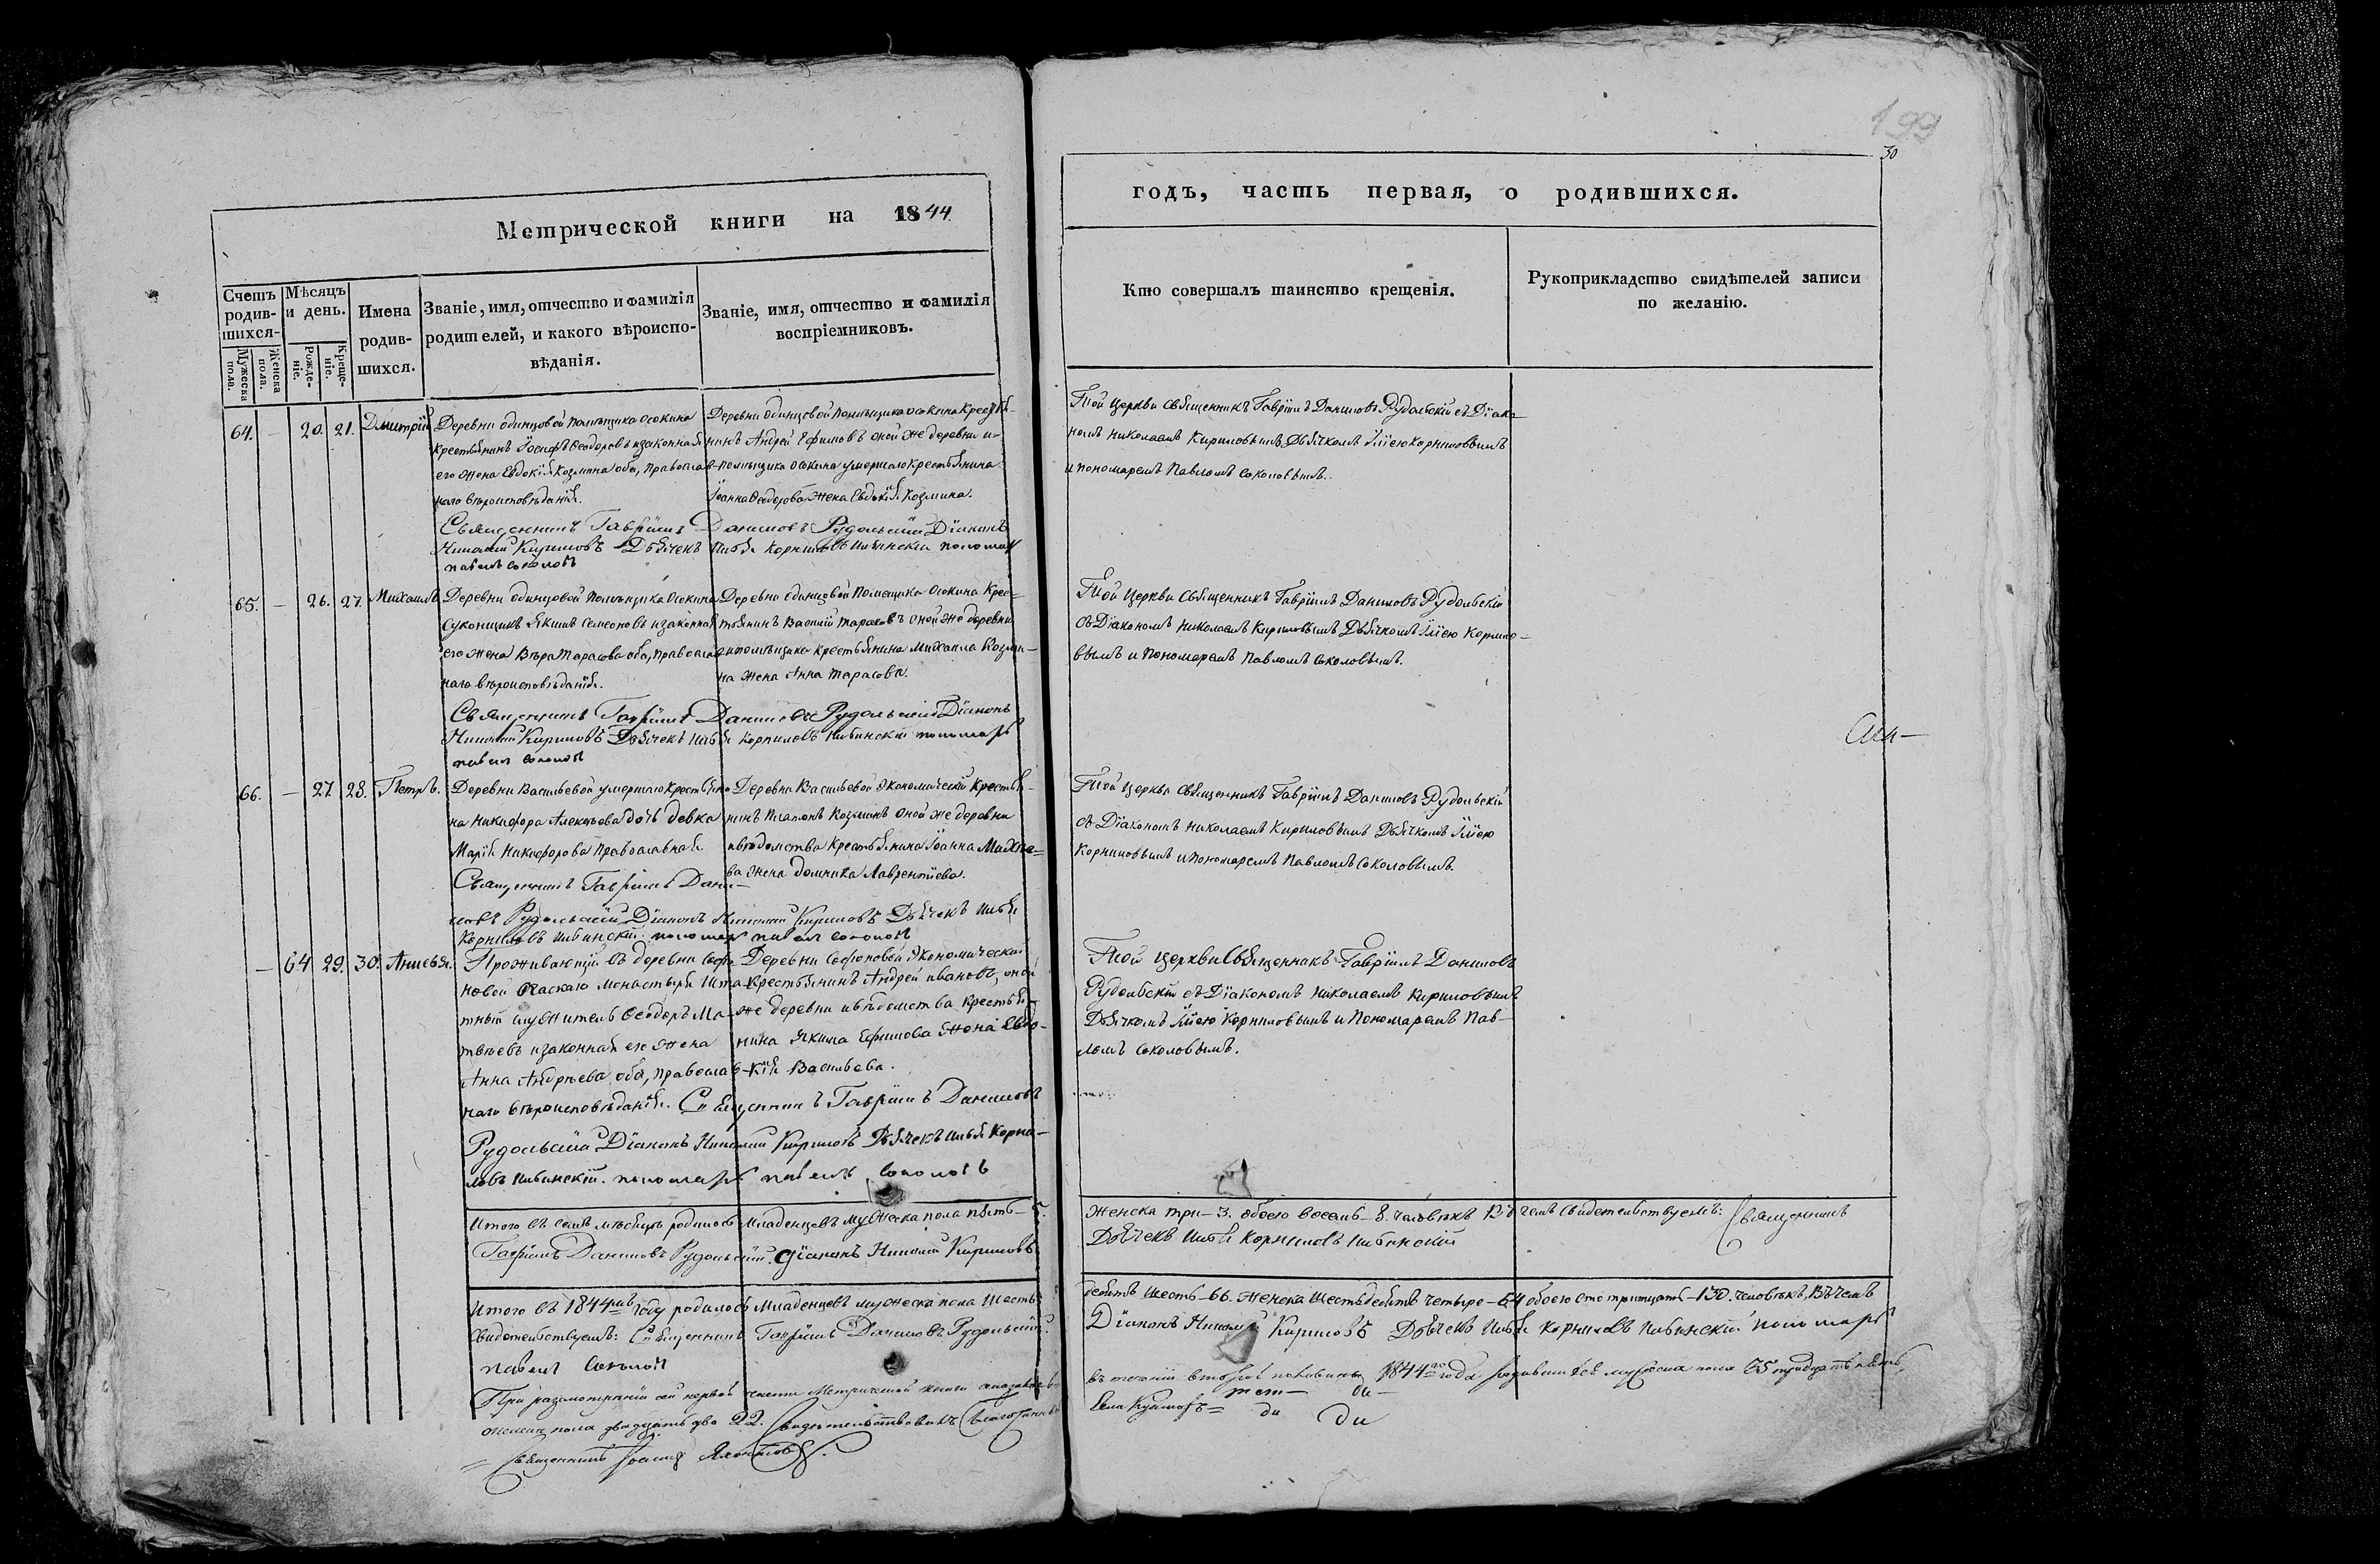 199
30
Метрической книги на 1844
годъ, часть первая, о родившихся.
Счетъ родив-шихся
Мужеска пола.
Женска пола.
Мѣсяцъ и день.
Рожде-ніе.
Креще-ніе.
Имена родив-шихся.
Званіе, имя, отчество и фамилія
родителей, и какого вѣроиспо-
вѣданія.
Званіе, имя, отчество и фамилія
воспріемниковъ.
Кто совершалъ таинство крещенія.
Рукоприкладство свидѣтелей записи
по желанію.
64. — 20. 21. Дмитрій
Деревни одинцовой помѣщика Осокина
крестьянинъ Іосифъ Ѳеодоровъ изаконная
его жена Евдокія Козмина оба, православ-
наго вѣроисповѣданія.
Деревни одинцовой помѣщика осокина Кресть-
нинъ Андрей Ефимовъ оной же деревни и
помѣщика осокина умершаго крестьянина
Іоанна Ѳеодорова жена Евдокія Козмина.
Той Церкви Священникъ Гавріилъ Даниловъ Рудольскій съ Діако-
номъ Николаемъ Кириловымъ Дьячкомъ Иліею Корниловымъ
и пономаремъ Павломъ Соколовымъ.
Священникъ Гавріилъ Даниловъ Рудольскій Діаконъ
Николай Кириловъ Дьячекъ Илья Корниловъ пономарь
павелъ соколовъ
65. — 26. 27. Михаилъ
Деревни одинцовой помѣщика Осокина
Суконщикъ Якимъ Семеоновъ изаконная
его жена Вѣра Тарасова оба, православ-
наго вѣроисповѣданія.
Деревни одинцовой Помещика Осокина Крес-
тьянинъ Василій Тарасовъ оной же деревни
ипомѣщика крестьянина Михаила Козми-
на жена Анна Тарасова.
Той Церкви Священникъ Гавріилъ Даниловъ Рудольскій
съ Діакономъ Николаемъ Кириловымъ Дьячкомъ Иліею Корнило-
вымъ и Пономаремъ Павломъ Соколовымъ.
Священникъ Гавріилъ Даниловъ Рудольскій Діаконъ
Николай Кириловъ Дьячекъ Илья Корниловъ пономарь
павелъ соколовъ
66. — 27. 28. Петръ.
Деревни Васильевой умершаго крестьяни-
на Никифора Алексѣева дочь девка
Марія Никифорова православная.
Деревни Васильевой Экономическій крестья-
нинъ Платонъ Козминъ оной же деревни
ивѣдомства крестьянина Іоанна
жена Домника Лаврентіева.
Той Церкви Священникъ Гавріилъ Даниловъ Рудольскій
съ Діакономъ Николаемъ Кириловымъ Дьячкомъ Иліею
Корниловымъ и Пономаремъ Павломъ Соколовымъ.
Священникъ Гавріилъ Дани-
ловъ Рудольскій Діаконъ Николай Кириловъ Дьячекъ Илья
Корниловъ пономарь павелъ соколовъ
— 64 29. 30.
Проживающій въ деревни Софо-
новой монастыря Шта-
тный служитель Ѳеодоръ Ма-
твѣевъ изаконная его жена
Анна Андрѣева оба, православ-
наго вѣроисповѣданія.
Деревни Софоновой Экономическій
Крестьянинъ Андрей ивановъ, оной
же деревни ивѣдомства крестья-
нина Якима Ефимова жена Евдо-
кія Васильева.
Той церкви Священникъ Гавріилъ Даниловъ
Рудольскій съ Діакономъ Николаемъ Кириловымъ
Дьячкомъ Иліею Корниловымъ и Пономаремъ Пав-
ломъ Соколовымъ.
Священникъ Гавріилъ Даниловъ
Рудольскій Діаконъ Николай Кириловъ Дьячекъ Илья Корни-
ловъ пономарь павелъ соколовъ
Итого въ семъ мѣсяцѣ родилось Младенцевъ мужеска пола пять — 5.
женска три — 3. обоего восемь — 8. человѣкъ Въ чемъ свидетельствуемъ: Священникъ
Гавріилъ Даниловъ Рудольскій. Діаконъ Николай Кириловъ
Дьячекъ Илья Корниловъ
Итого въ 1844мъ году родилось Младенцевъ мужеска пола Шесть-
десятъ шесть — 66. женска шестьдесятъ четыре — 64 обоего сто тритцать — 130. человѣкъ, Въ чемъ
свидетельствуемъ: Священникъ Гавріилъ Даниловъ Рудольскій.
Діаконъ Николай Кириловъ Дьячекъ Илья Корниловъ пономарь
павелъ Соколовъ
При разсмотреніи сей первой части Метрической книги оказалось
въ теченіи второй половины 1844го года родившихся мужеска пола 35 тридцать пять,
женска пола двадцать два 22. Свидѣтельствовалъ Благочинный
Священникъ Іоаннъ